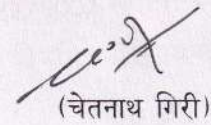 (चेतनाथ गिरी)